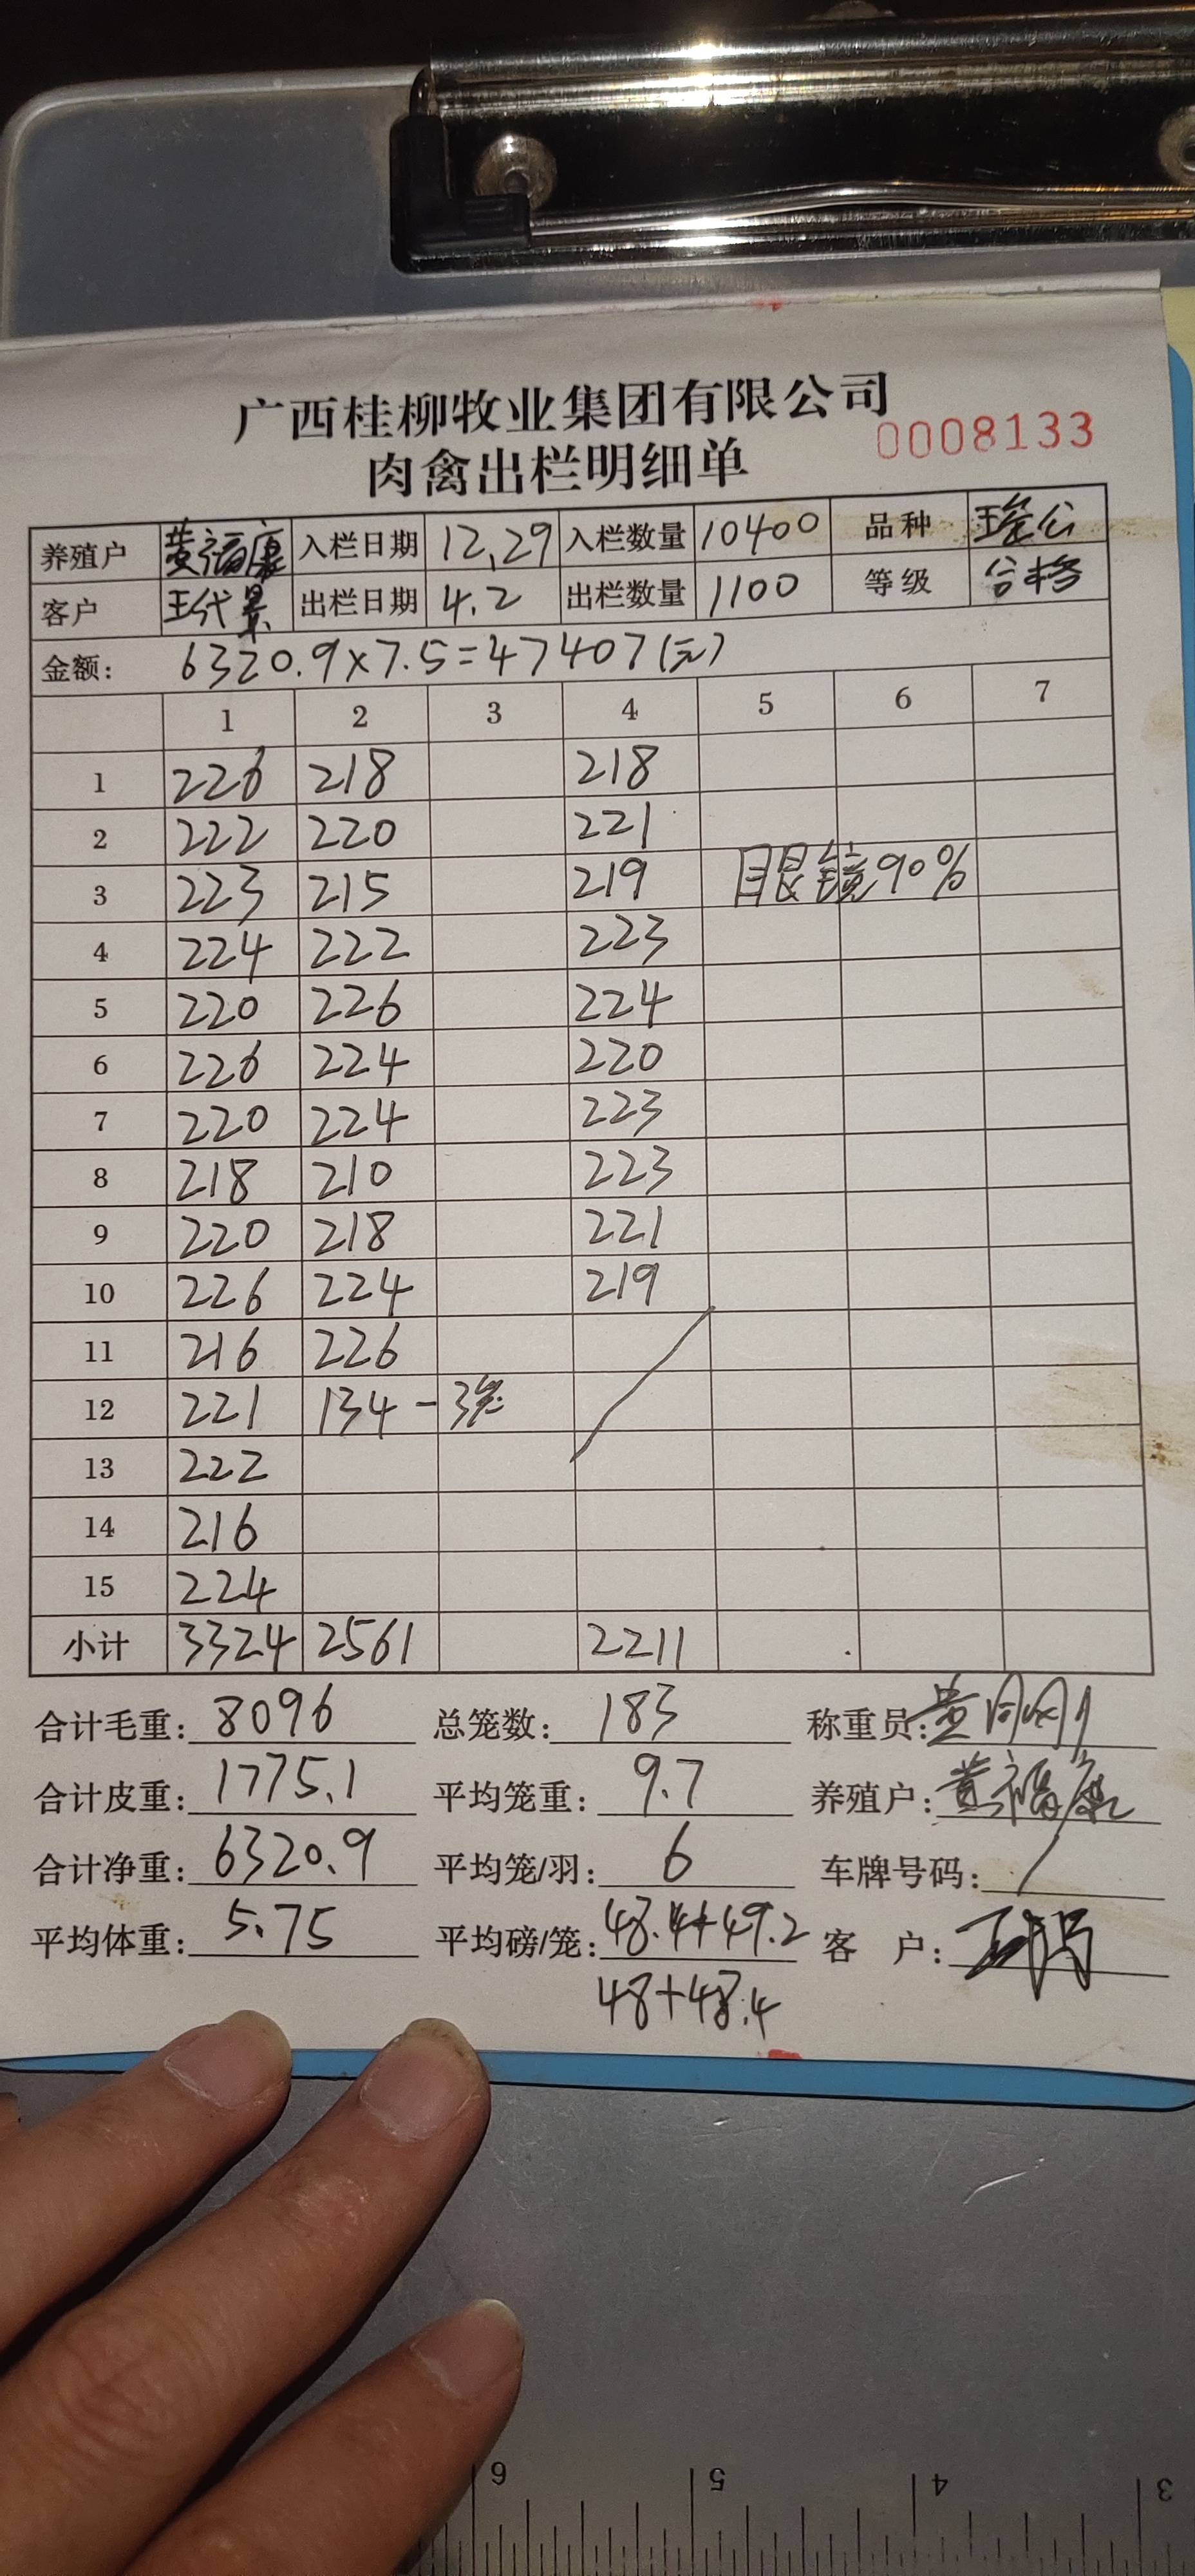 广西桂柳牧业集团有限公司
0008133
肉禽出栏明细单
养殖户 黄福康 入栏日期 12.29 入栏数量 10400 品种 瑶公
客户 王代景 出栏日期 4.2 出栏数量 1100 等级 合格
金额: 6320.9×7.5=47407(元)
1 2 3 4 5 6 7
1 226 218 218
2 222 220 221
3 223 215 219 目眼镜90%
4 224 222 223
5 220 226 224
6 226 224 220
7 220 224 223
8 218 210 223
9 220 218 221
10 226 224 219
11 216 226
12 221 134-3笼
13 222
14 216
15 224
小计 3324 2561 2211
合计毛重: 8096 总笼数: 183 称重员:
合计皮重: 1775.1 平均笼重: 9.7 养殖户: 黄福康
合计净重: 6320.9 平均笼/羽: 6 车牌号码: /
平均体重: 5.75 平均磅/笼: 48.4+49.2 客 户:
48+48.4
6 5 4 3